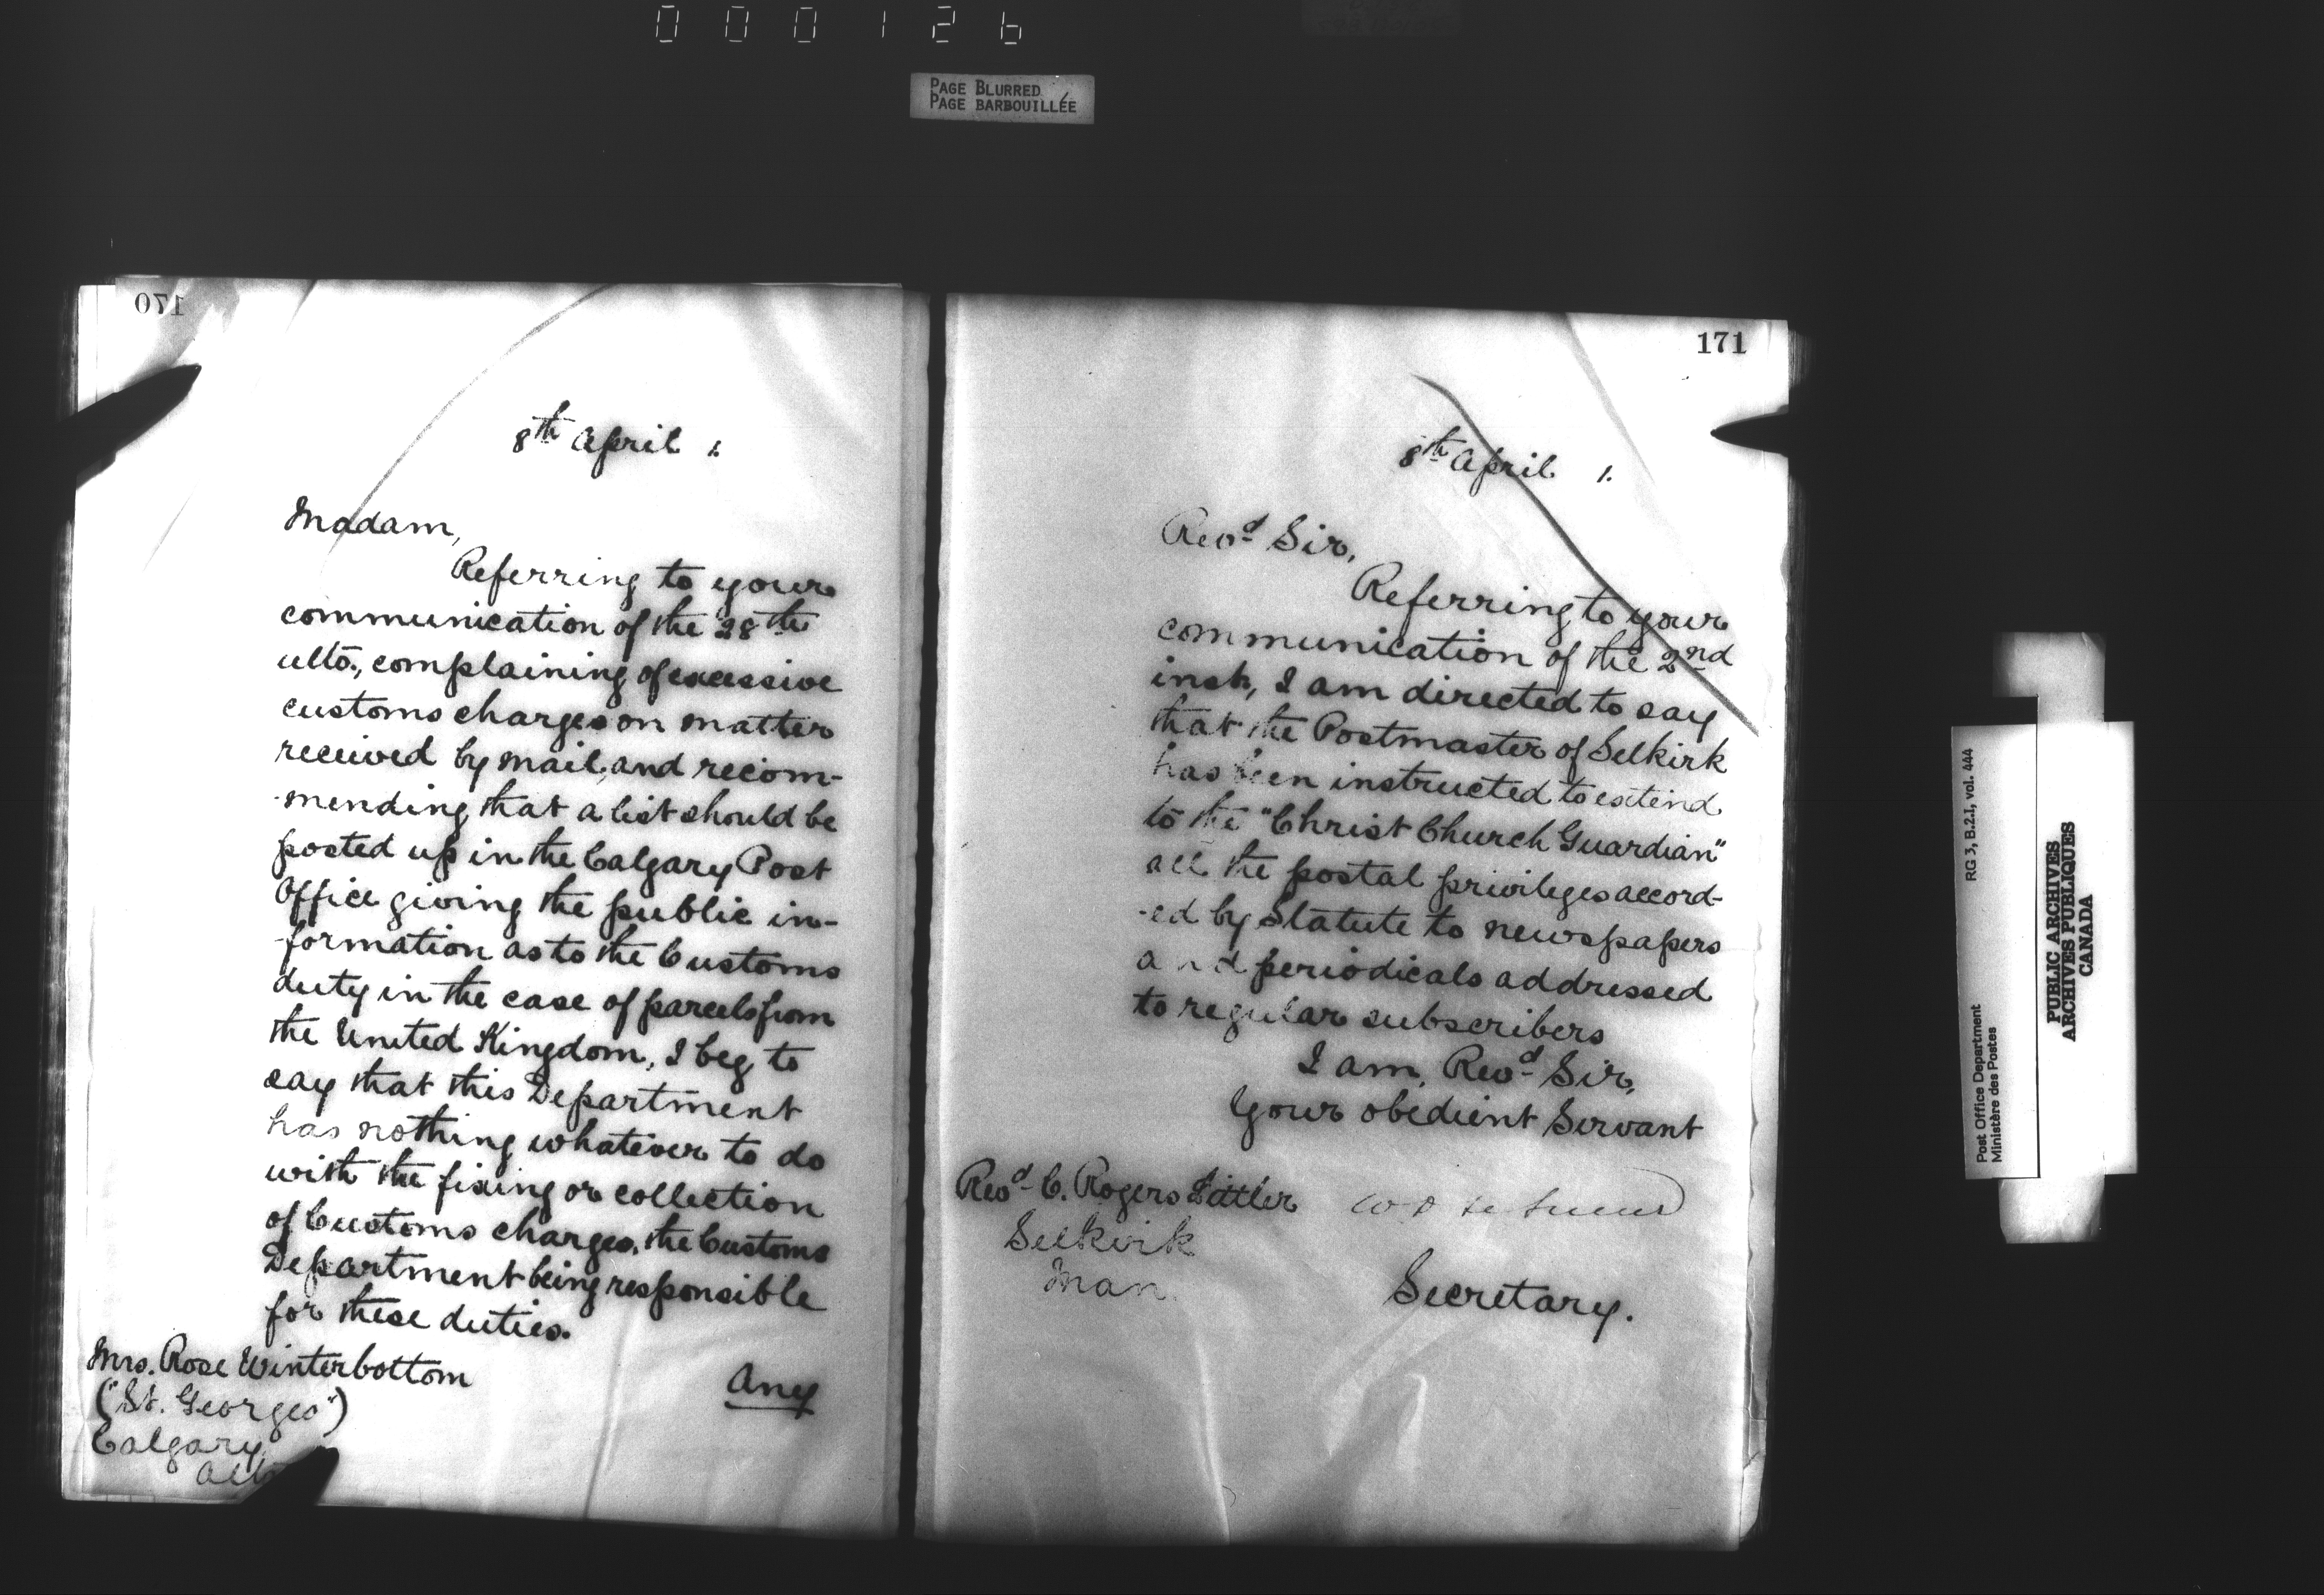 000126
PAGE BLURRED
PAGE BARBOUILLÉE
170
8th April 1.
Madam,
Referring to your
communication of the 28th
ulto., complaining of excessive
customs charges on matter
received by mail, and recom-
-mending that a list should be
posted up in the Calgary Post
Office giving the public in-
-formation as to the Customs
duty in the case of parcels from
the United Kingdom, I beg to
say that this Department
has nothing whatever to do
with the fixing or collection
of Customs charges, the Customs
Department being responsible
for these duties.
Mrs. Rose Winterbottom
("St. Georges")
Calgary
Alta
Any
171
8th April 1.
Revd Sir,
Referring to your
communication of the 2nd
inst, I am directed to say
that the Postmaster of Selkirk
has been instructed to extend
to the "Christ Church Guardian"
all the postal privileges accord-
-ed by Statute to newspapers
and periodicals addressed
to regular subscribers
I am, Revd Sir,
Your obedient Servant
Revd C. Rogers Littler
Selkirk
Man.
Secretary.
Post Office Department
Ministère des Postes
RG 3, B.2.I, vol. 444
PUBLIC ARCHIVES
ARCHIVES PUBLIQUES
CANADA